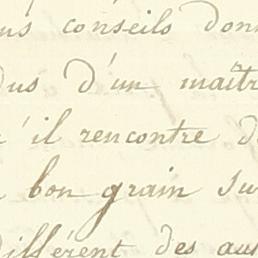 ns conseils donn
dus d'un maîtr
'il rencontre d
bon grain su
différent des au